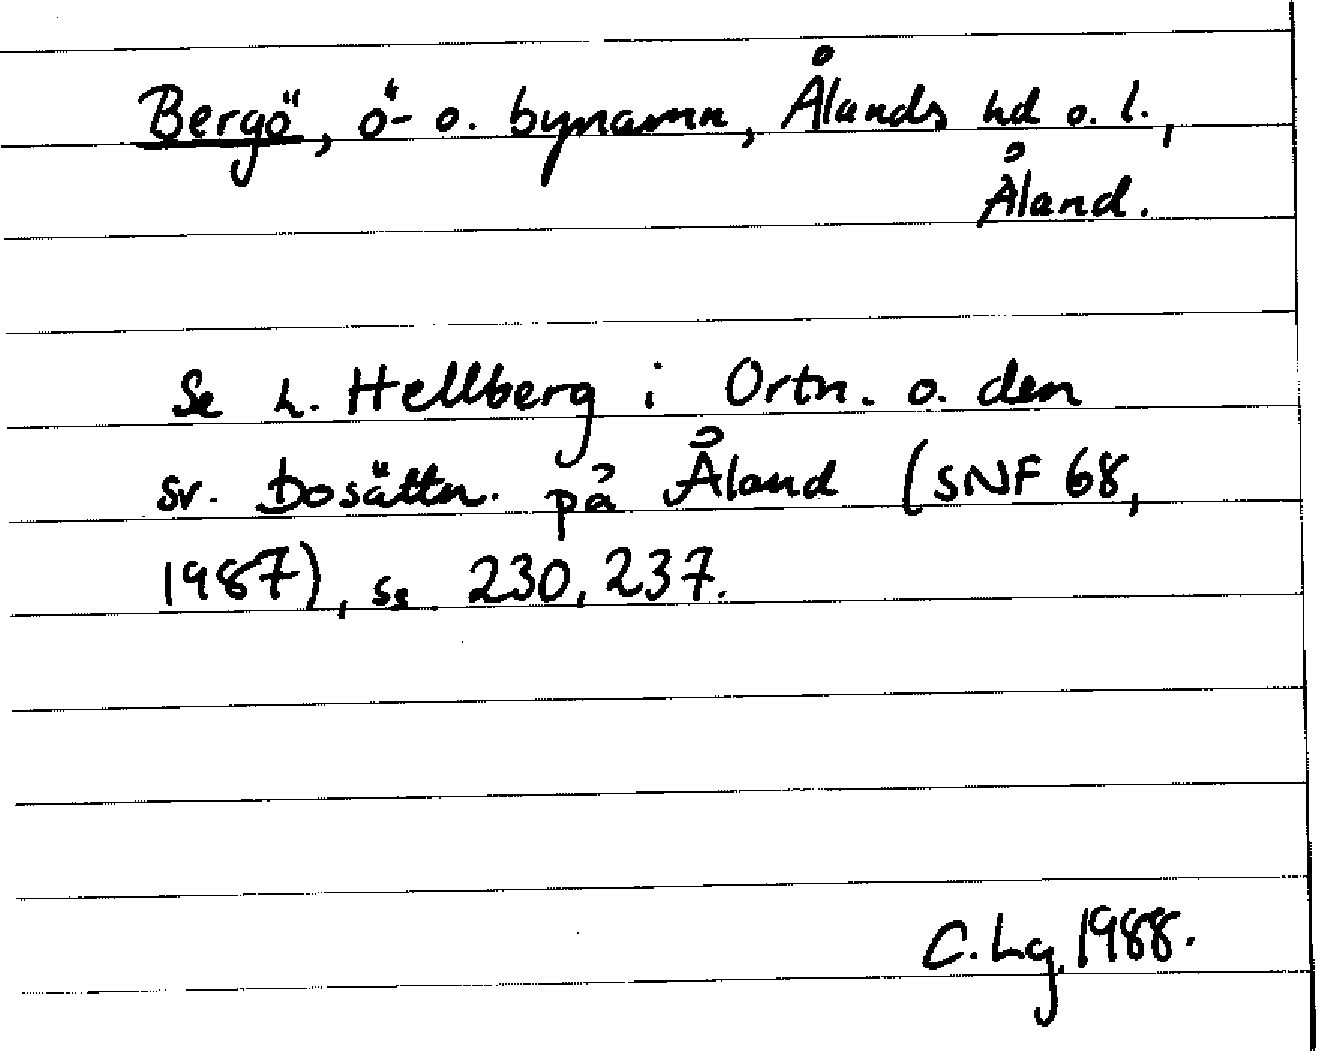 Bergö, ö- o. bynamn, Ålands hd o. l.,
Åland.
Se L. Hellberg i Ortn. o. den
sv. bosättn. på Åland (SNF 68,
1987), ss 230, 237.
C. Lg. 1988.